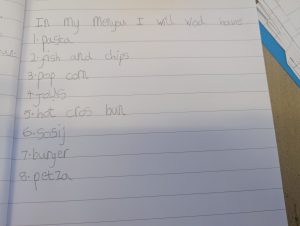 In my menyou I will vod have
1. pasta
2. fish and chips
3. pop corn
5. hot cros bun
6. sosij
7. burger
8. petza